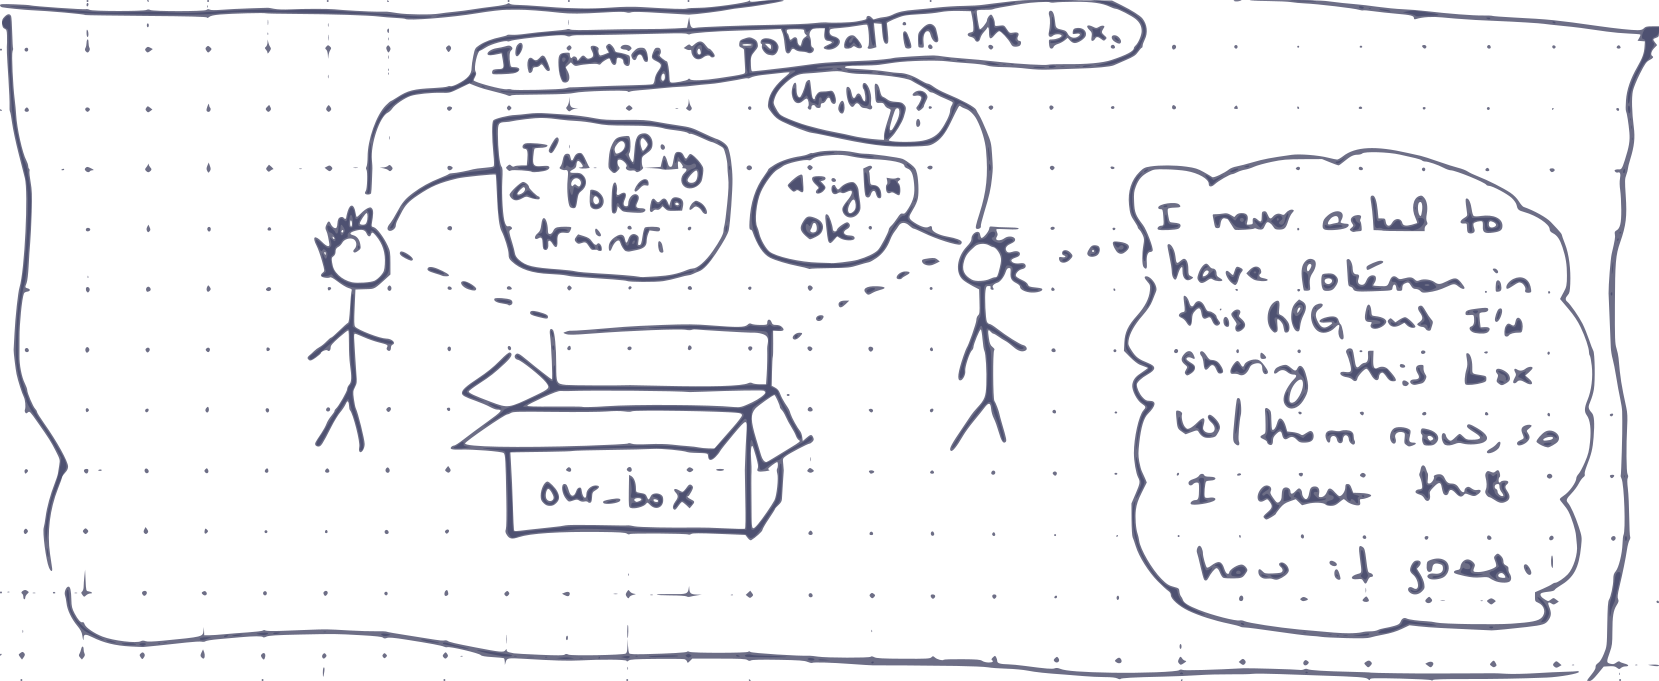 I'm putting a pokéball in the box.
Um, Why?
I'm RPing
a Pokémon
trainer.
*sigh*
OK
I never asked to
have Pokémon in
this RPG, but I'm
sharing this box
w/ them now, so
I guess that's
how it goes.
our_box